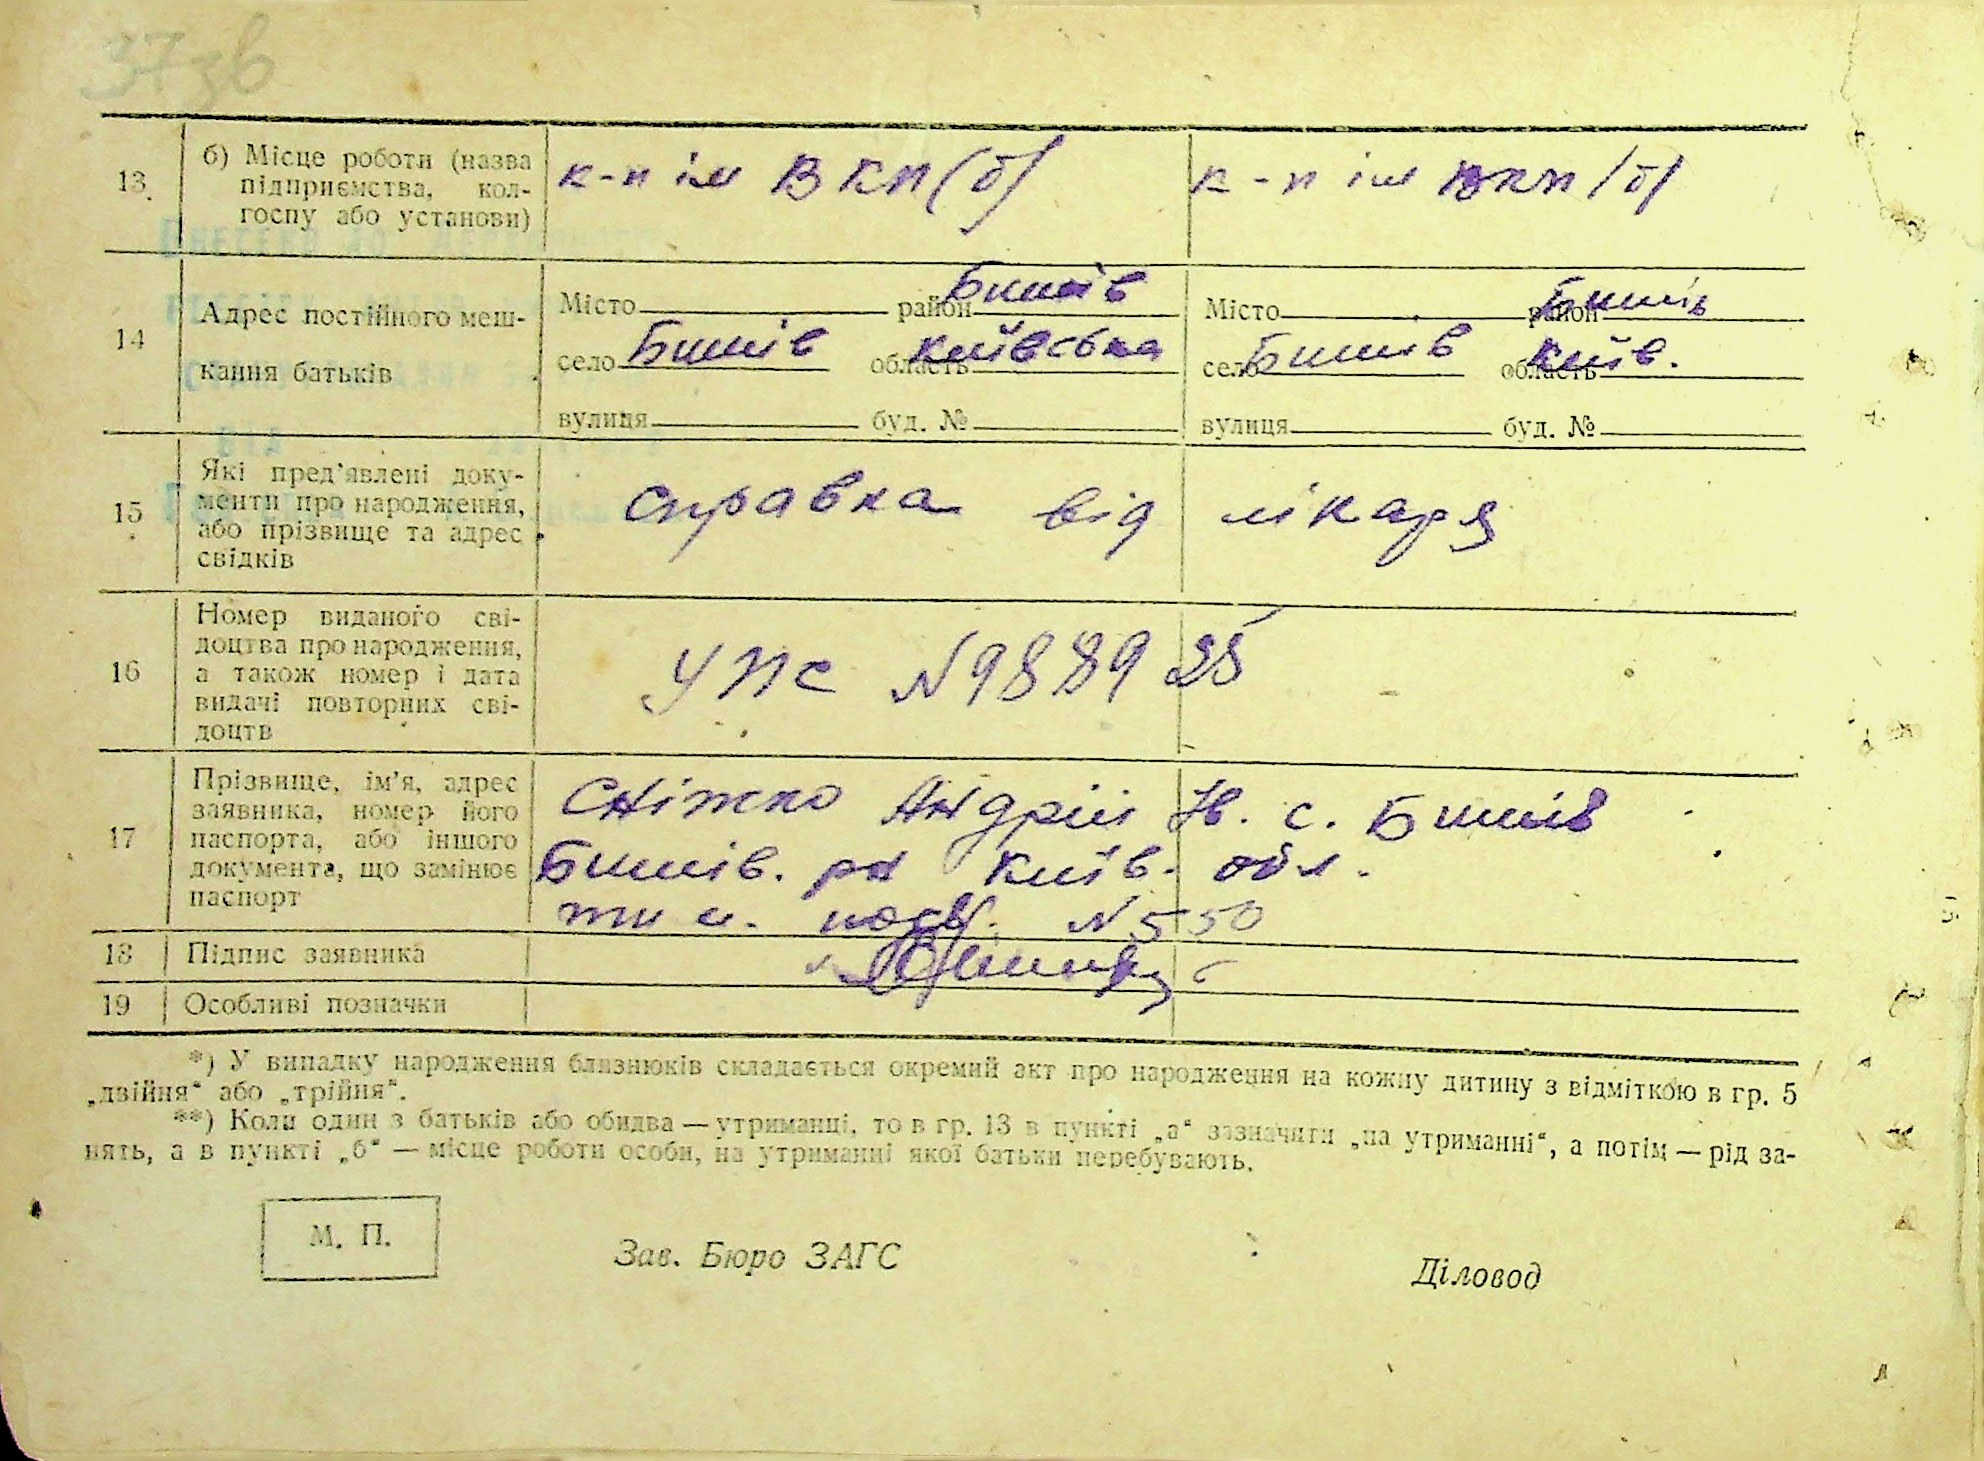 37зв
13. б) Місце роботи (назва підприємства, кол-
госпу або установи)
к-п ім ВКП(б) к-п ім ВКП/б/
14 Адрес постійного меш-
кання батьків
Місто район Бишів Місто район Бишів
село Бишів область Київська село Бишів область Київ.
вулиця буд. № вулиця буд. №
15 Які пред'явлені доку-
менти про народження,
або прізвище та адрес
свідків
справка від лікаря
16 Номер виданого сві-
доцтва про народження,
а також номер і дата
видачі повторних сві-
доцтв
УПС N 988925
17 Прізвище, ім'я, адрес
заявника, номер його
паспорта, або іншого
документа, що замінює
паспорт
Сніжко Андрій Ів. с. Бишів
Бишів. рн Київ. обл.
N 550
18 Підпис заявника
19 Особливі позначки
*) У випадку народження близнюків складається окремий акт про народження на кожну дитину з відміткою в гр. 5
„двійня“ або „трійня“.
**) Коли один з батьків або обидва — утриманці, то в гр. 13 в пункті „а“ зазначити „на утриманні“, а потім — рід за-
нять, а в пункті „б“ — місце роботи особи, на утриманні якої батьки перебувають.
М. П.
Зав. Бюро ЗАГС Діловод